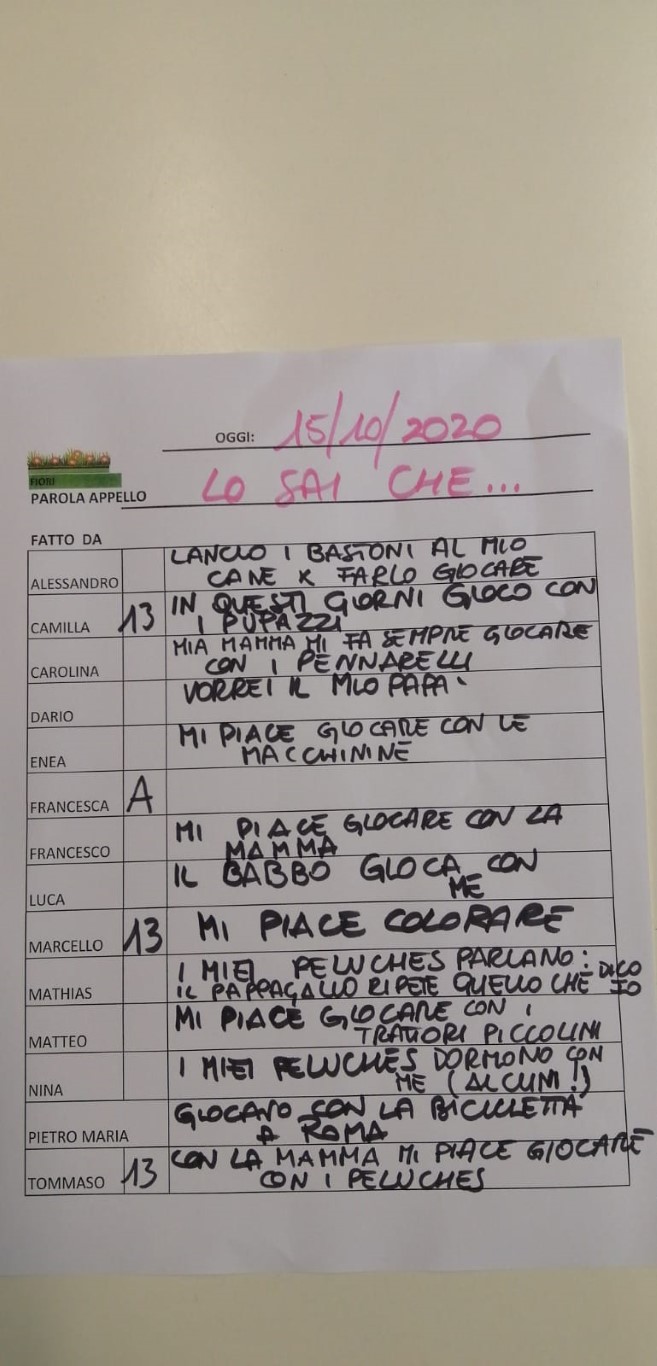 OGGI: 15/10/2020
FIORI
PAROLA APPELLO LO SAI CHE...
FATTO DA
ALESSANDRO LANCIO I BASTONI AL MIO
CANE X FARLO GIOCARE
CAMILLA 13 IN QUESTI GIORNI GIOCO CON
I PUPAZZI
CAROLINA MIA MAMMA MI FA SEMPRE GIOCARE
CON I PENNARELLI
DARIO VORREI IL MIO PAPA'
ENEA MI PIACE GIOCARE CON LE
MACCHININE
FRANCESCA A
FRANCESCO MI PIACE GIOCARE CON LA
MAMMA
LUCA IL BABBO GIOCA CON
ME
MARCELLO 13 MI PIACE COLORARE
MATHIAS I MIEI PELUCHES PARLANO:
IL PAPPAGALLO RIPETE QUELLO CHE DICO
IO
MATTEO MI PIACE GIOCARE CON I
TRATTORI PICCOLINI
NINA I MIEI PELUCHES DORMONO CON
ME (ALCUNI!)
PIETRO MARIA GIOCAVO CON LA BICICLETTA
A ROMA
TOMMASO 13 CON LA MAMMA MI PIACE GIOCARE
CON I PELUCHES